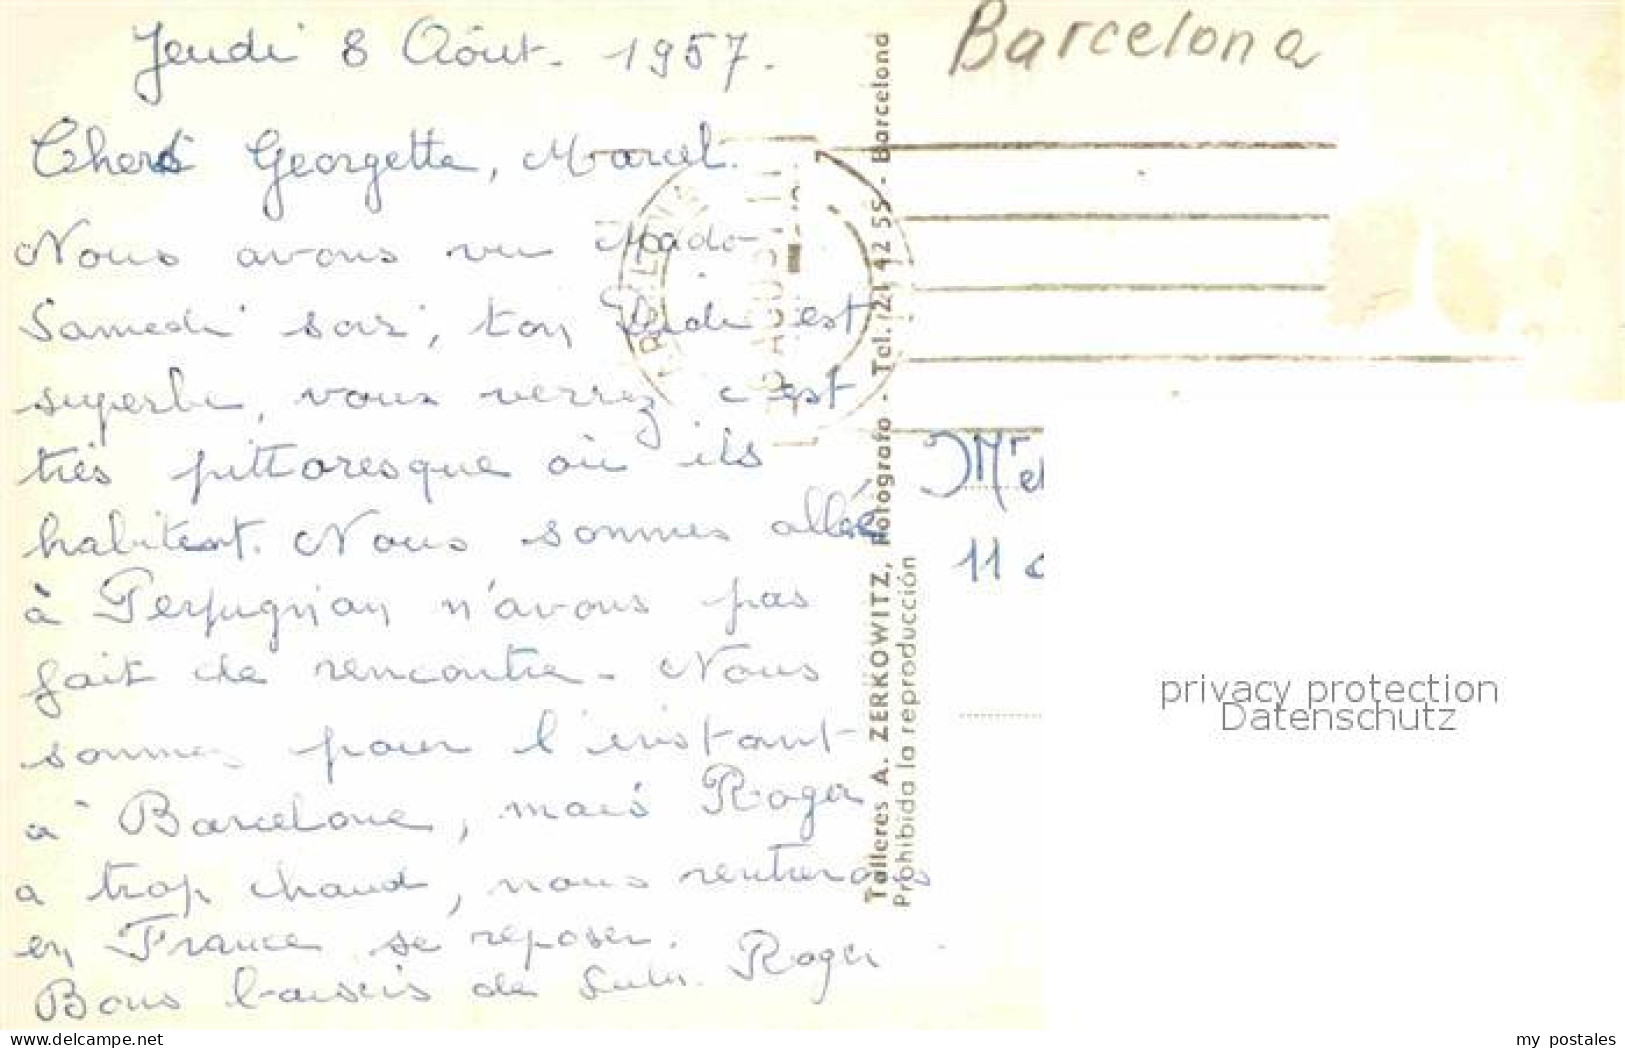 Jeudi 8 Aôut. 1957.
Chers Georgette, Marcel.
Nous avons vu Mado
Samedi soir, ton Didi est
superbe, vous verrez c'est
très pittoresque où ils
habitent. Nous sommes allés
à Perpignan n'avons pas
fait de rencontre. Nous
sommes pour l'instant
à Barcelone, mais Roger
a trop chaud, nous rentrerons
en France se reposer.
Bons baisers de Roger
Barcelona
BARCELONA
AGOSTO
Talleres A. ZERKOWITZ, Fotógrafo - Tel. 21 42 55 - Barcelona
Prohibida la reproducción
Mr et
11
privacy protection
Datenschutz
my postales